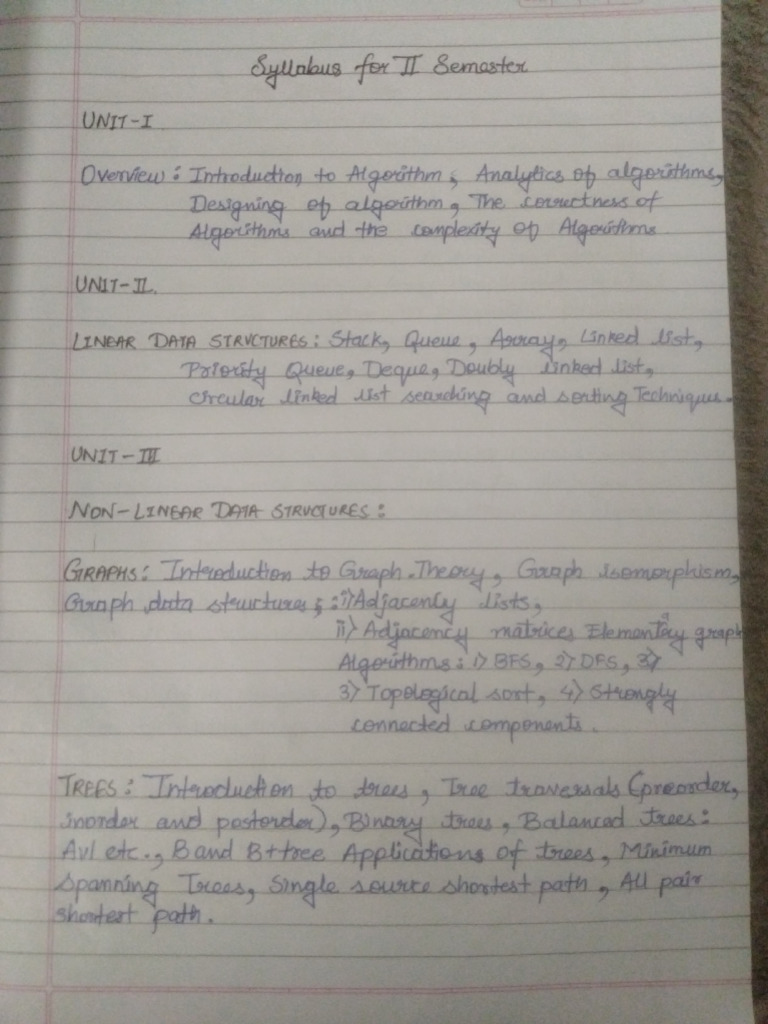 Syllabus for II Semester
UNIT-I
Overview: Introduction to Algorithm, Analytics of algorithms,
Designing of algorithm, The correctness of
Algorithms and the complexity of Algorithms
UNIT-II.
LINEAR DATA STRUCTURES: Stack, Queue, Array, Linked list,
Priority Queue, Deque, Doubly linked list,
circular linked list searching and sorting Techniques.
UNIT-III
NON-LINEAR DATA STRUCTURES:
GRAPHS: Introduction to Graph Theory, Graph isomorphism,
Graph data structures; : i) Adjacency lists,
ii) Adjacency matrices Elementary graph
Algorithms: 1) BFS, 2) DFS,
3) Topological sort, 4) Strongly
connected components.
TREES: Introduction to trees, Tree traversals (preorder,
inorder and postorder), Binary trees, Balanced trees:
Avl etc., B and B+tree Applications of trees, Minimum
Spanning Trees, Single source shortest path, All pair
shortest path.